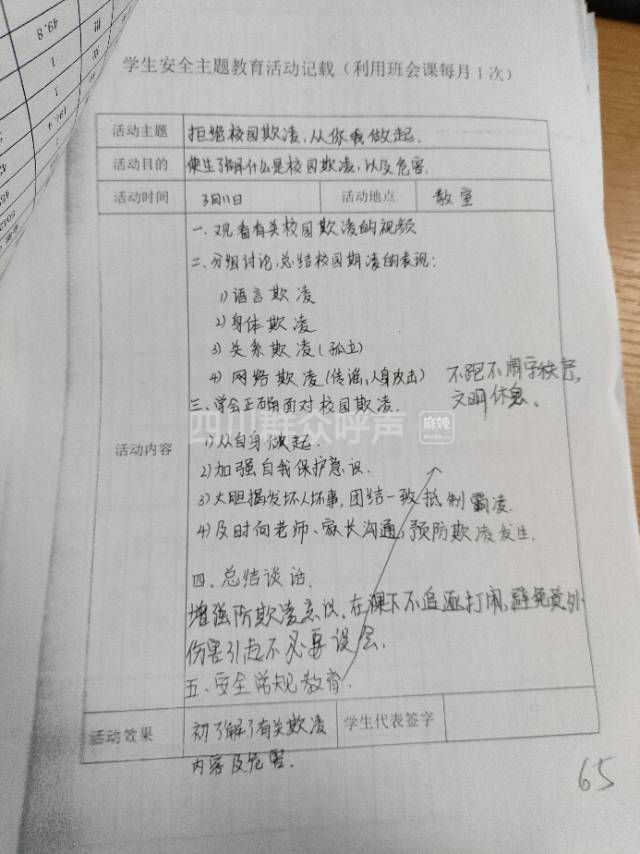 49.8
学生安全主题教育活动记载（利用班会课每月1次）
活动主题 拒绝校园欺凌，从你我做起.
活动目的 使生了解什么是校园欺凌，以及危害.
活动时间 3月11日 活动地点 教室
一、观看有关校园欺凌的视频
二、分组讨论，总结校园期凌的表现：
1）语言欺凌
2）身体欺凌
3）关系欺凌（孤立）
4）网路欺凌（传谣，人身攻击）
不跑不闹守秩序，
文明休息、
三、学会正确面对校园欺凌.
四川群众呼声 麻辣
活动内容
1）从自身做起.
2）加强自我保护意识.
3）大胆揭发坏人坏事，团结一致抵制霸凌.
4）及时向老师、家长沟通，预防欺凌发生.
四、总结谈话.
增强防欺凌意识，在课下不追逐打闹，避免意外
伤害引起不必要误会.
五、安全常规教育.
活动效果 初了解了有关欺凌 学生代表签字
内容及危害.
65